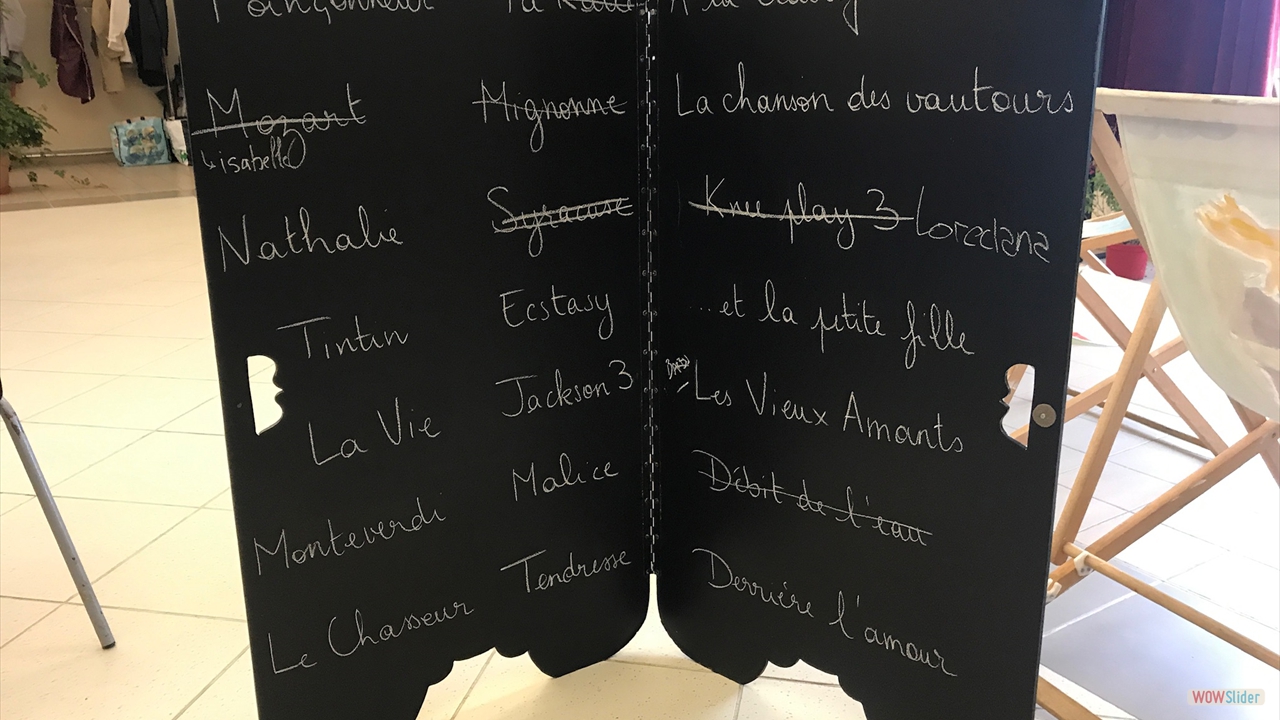 Poinçonneur
Mozart
↳ isabelle
Nathalie
Tintin
La Vie
Monteverdi
Le Chasseur
Mignonne
Syracuse
Ecstasy
Jackson 3
Malice
Tendresse
La chanson des vautours
Knee play 3 Loredana
...et la petite fille
Les Vieux Amants
Débit de l'eau
Derrière l'amour
WOWSlider